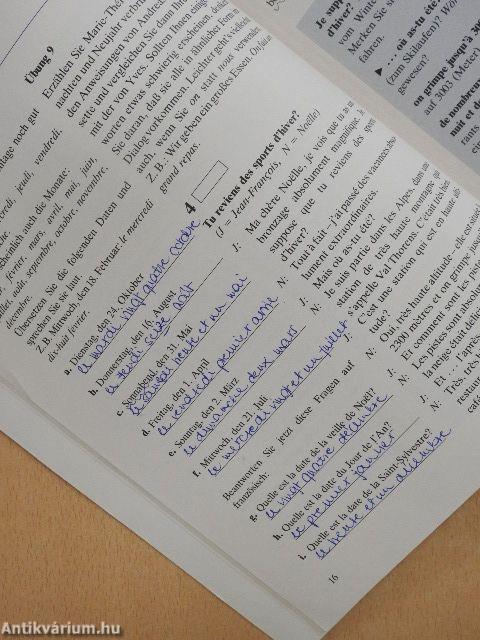 ntage noch gut
credi, jeudi, vendredi,
cheinlich auch die Monate:
février, mars, avril, mai, juin,
juillet, août, septembre, octobre, novembre,
décembre.
Übersetzen Sie die folgenden Daten und
sprechen Sie sie laut.
Z.B. Mittwoch, den 18. Februar: le mercredi
dix-huit février.
a. Dienstag, den 24. Oktober
le mardi vingt quatre octobre
b. Donnerstag, den 16. August
le jeudi seize août
c. Sonnabend, den 21. Mai
mai
d. Freitag, den 1. April
le vendredi premier avril
e. Sonntag, den 2. März
le dimanche deux mars
f. Mittwoch, den 21. Juli
le mercredi vingt et un juillet
Beantworten Sie jetzt diese Fragen auf
französisch:
g. Quelle est la date de la veille de Noël?
le vingt quatre décembre
h. Quelle est la date du Jour de l'An?
le premier janvier
i. Quelle est la date de la Saint-Sylvestre?
le trente et un décembre
16
Übung 9
Erzählen Sie Marie-Thé
nachten und Neujahr verbr
den Anweisungen von Andrée
sette und vergleichen Sie dann I
mit der von Yves. Sollten Ihnen einige
worten etwas schwierig erscheinen, denken
Sie daran, daß sie alle in ähnlicher Form im
Dialog vorkommen. Leichter geht's vielleicht
auch, wenn Sie on statt nous verwenden.
Z.B.: Wir geben ein großes Essen. On fait un
grand repas.
4
Tu reviens des sports d'hiver?
(J = Jean-François, N = Noëlle)
J: Ma chère Noëlle, je vois que tu as un
bronzage absolument magnifique. Je
suppose que tu reviens des sports
d'hiver?
N: Tout à fait – j'ai passé des vacances abso-
lument extraordinaires.
J: Mais où as-tu été?
N: Je suis partie dans les Alpes, dans une
station de très haute montagne, qui
s'appelle Val Thorens. C'était très bien.
C'est une station qui est en haute alti-
tude?
N: Oui, très haute altitude – elle est située
2300 mètres et on grimpe jusqu
J: Et comment sont les pistes
N: Les pistes sont absolu
la neige était déli
J: Et ... l'aprè
N: Très, trè
restaur
café
Je supp
d'hiver?
vom Winte
Merken Sie s
fahren.
... où as-tu été
(zum Skilaufen)? Wo
on grimpe jusqu'à 300
auf 3003 (Meter)
de nombreux
nuit et de
Antikvárium.hu
Antikvárium.hu